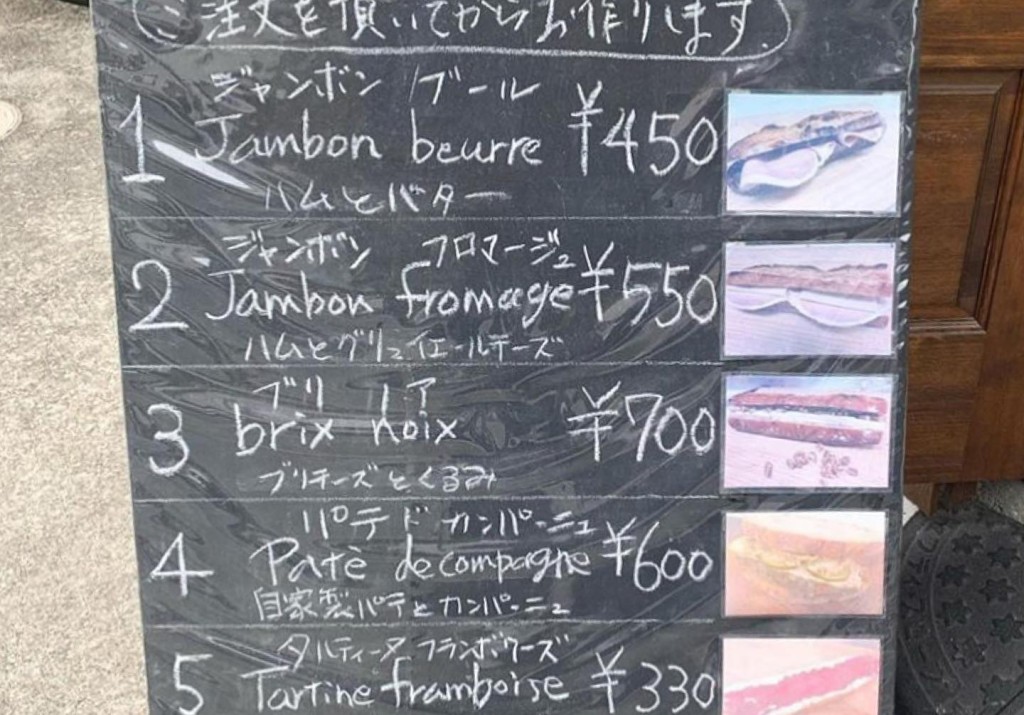 ご注文を頂いてからお作りします.
ジャンボン ブール
1 Jambon beurre ¥450
ハムとバター
ジャンボン フロマージュ
2 Jambon fromage ¥550
ハムとグリュイエールチーズ
ブリ ノア
3 brix noix ¥700
ブリチーズとくるみ
パテド カンパーニュ
4 Patè de compagne ¥600
自家製パテとカンパーニュ
タルティーヌ フランボワーズ
5 Tartine framboise ¥330